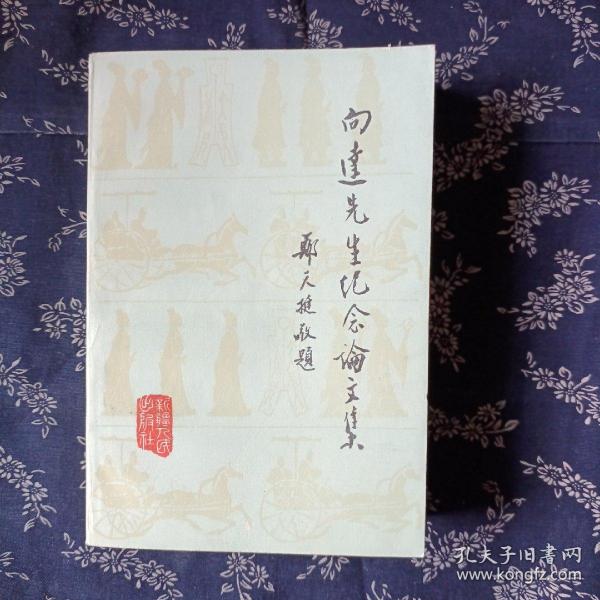 向達先生纪念論文集
鄭天挺敬題
新疆人民
出版社
孔夫子旧書网
www.kongfz.com